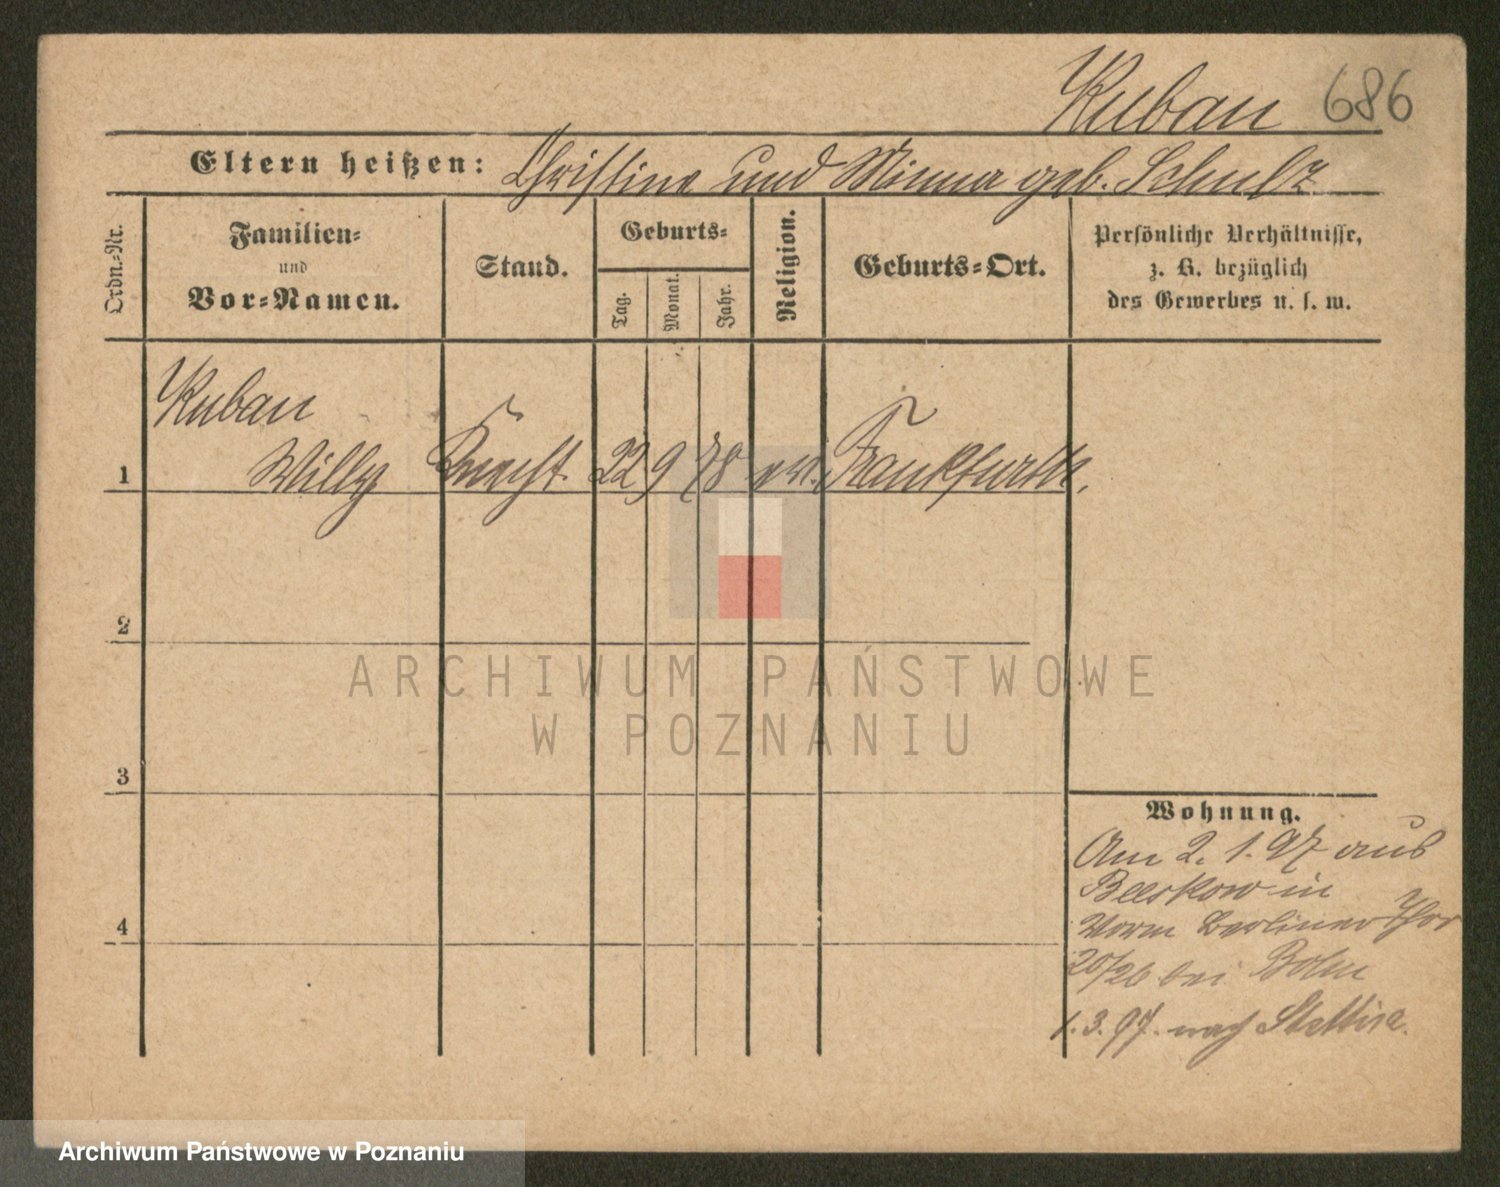 Kuban 686
Eltern heißen: Christine und Minna geb. Schulz
Ordn.-Nr.
Familien-
und
Vor-Namen.
Stand.
Geburts-
Tag.
Monat.
Jahr.
Religion.
Geburts-Ort.
Persönliche Verhältnisse,
z. B. bezüglich
des Gewerbes u. s. w.
Kuban
1 Willy Knecht 22 9 78 ev. Frankfurth,
2
ARCHIWUM PAŃSTWOWE
W POZNANIU
3
Wohnung.
Am 2. 1. 97 aus
Beeskow in
Berliner Thor
4
20/26 bei Bolm
1. 3. 97. nach Stettin.
Archiwum Państwowe w Poznaniu